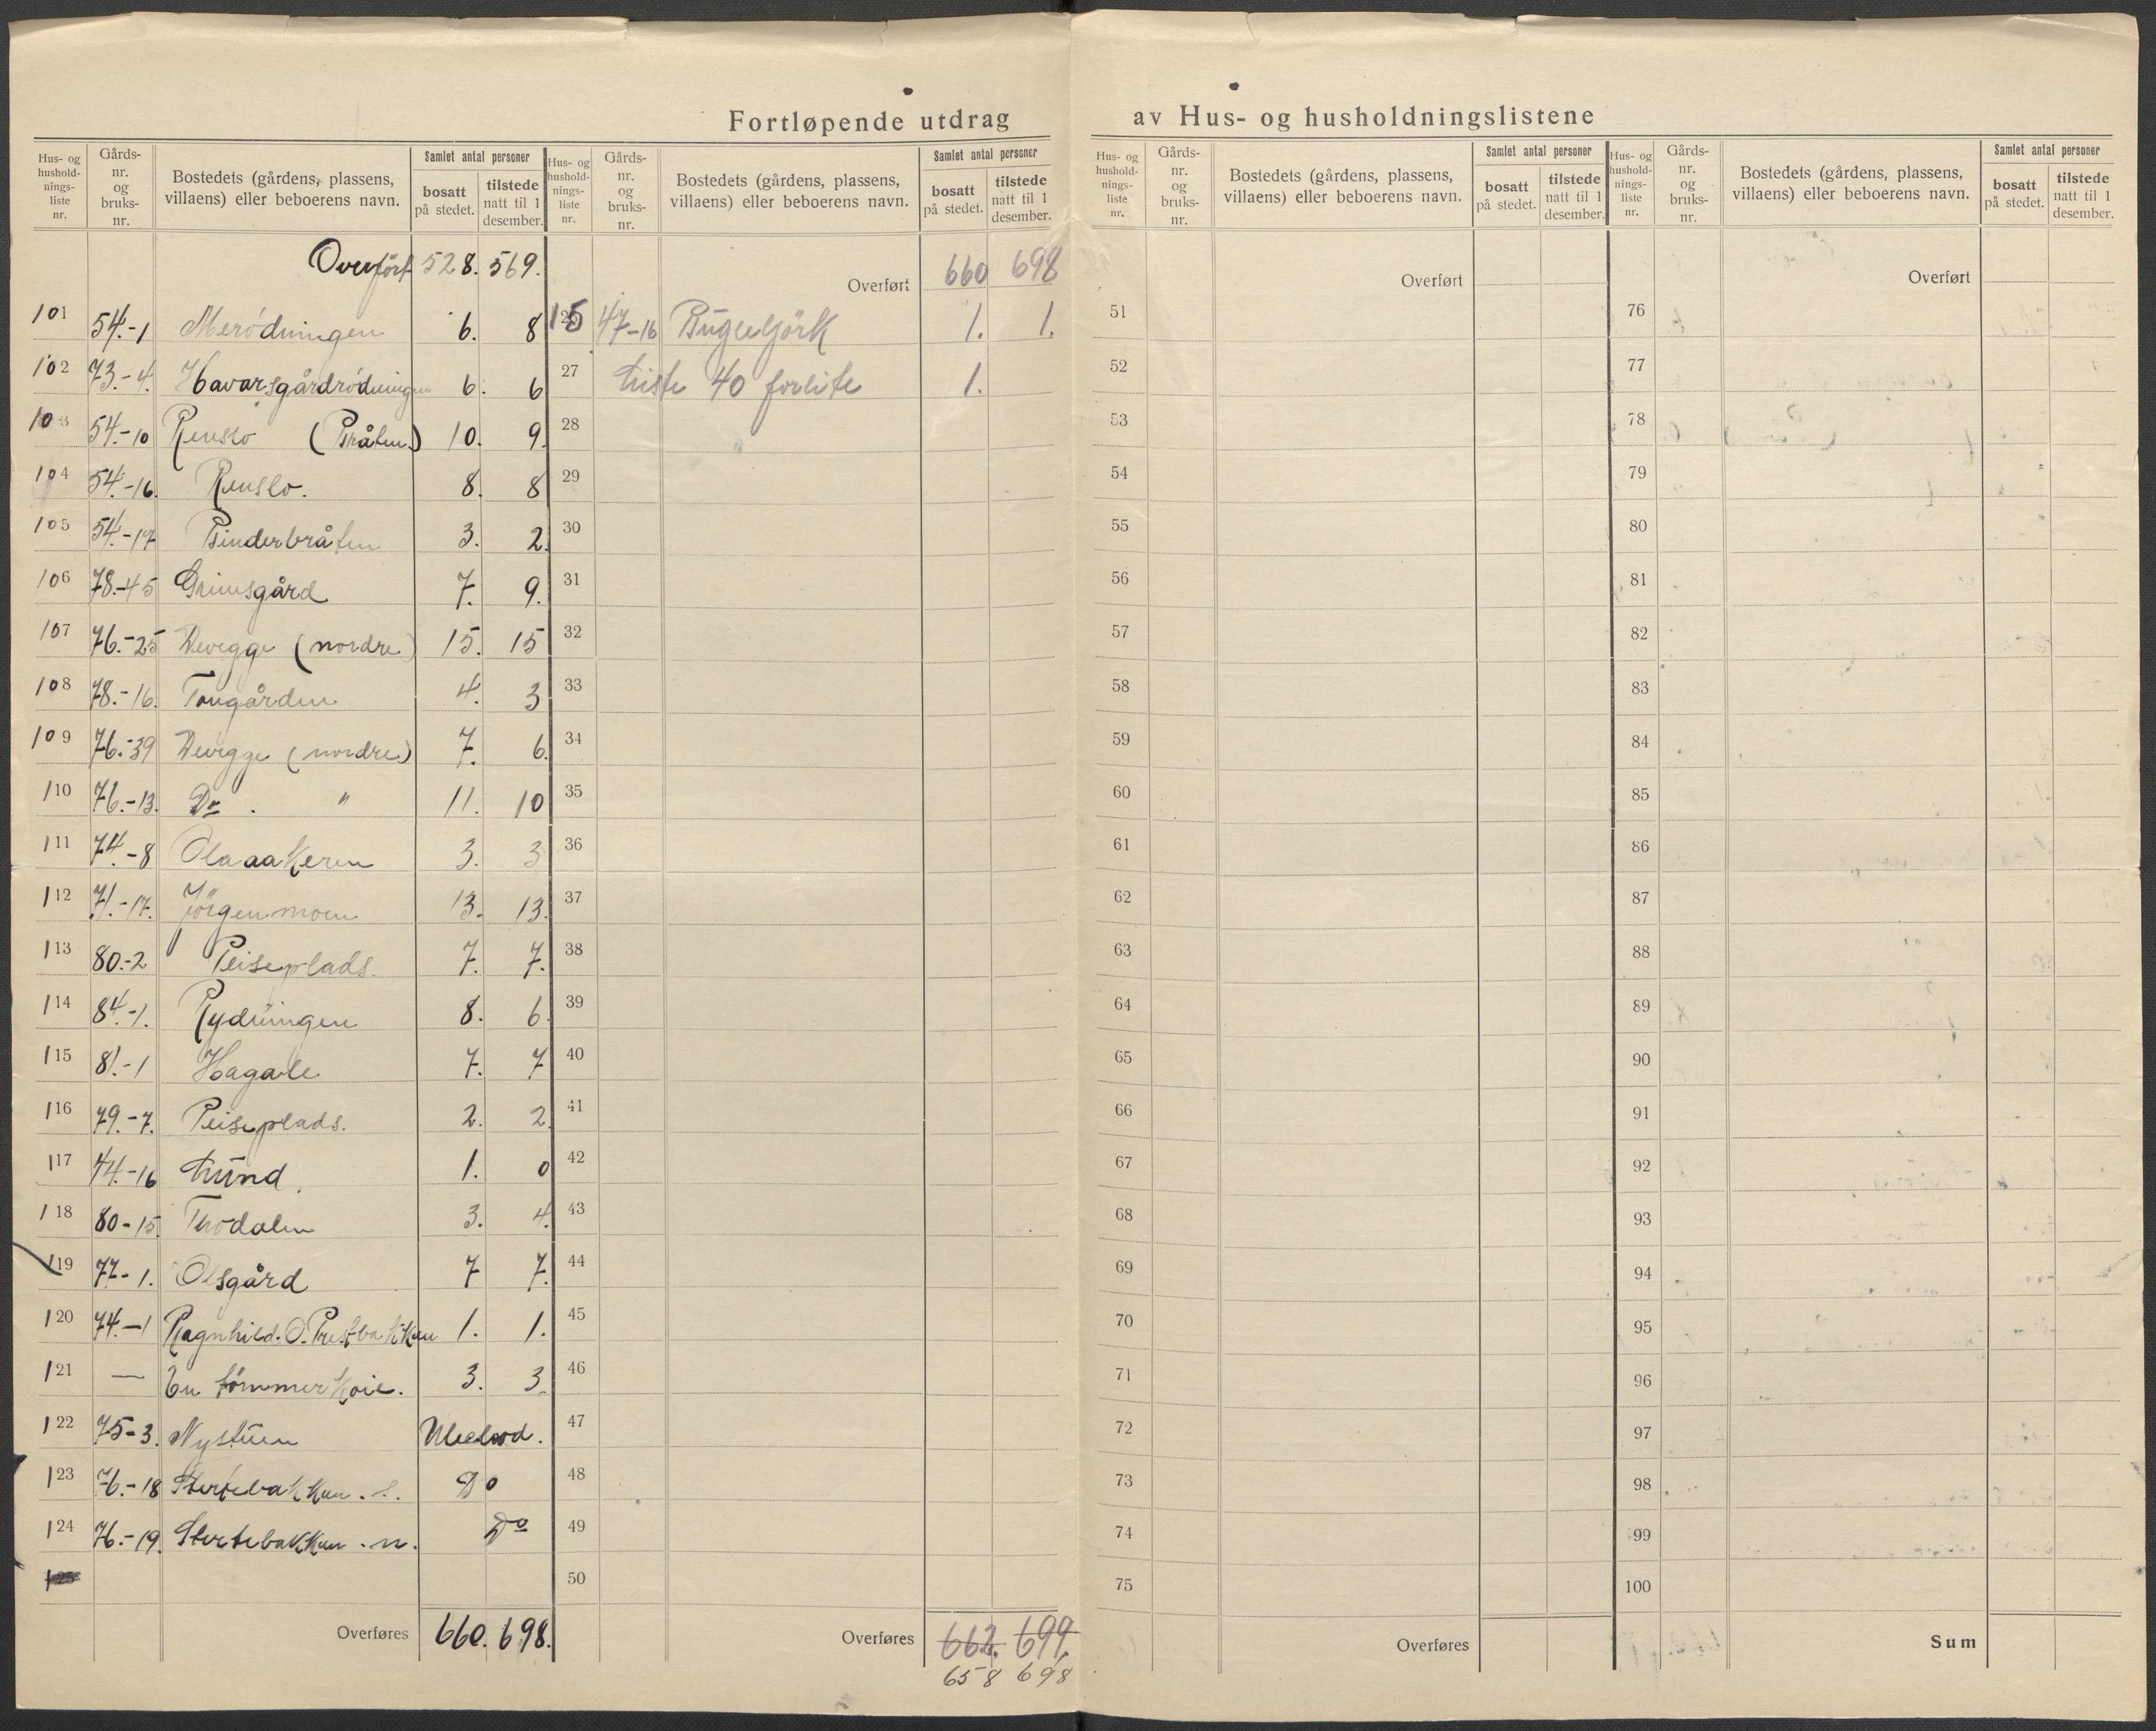 Fortløpende utdrag av Hus- og husholdningslistene
Hus- og hushold-nings-liste nr. Gårds-nr. og bruks-nr. Bostedets (gårdens, plassens, villaens) eller beboerens navn. Samlet antal personer bosatt på stedet. tilstede natt til 1 desember.
Overført 528. 569.
101 54.-1 Merödningen 6. 8
102 73.-4. Havarsgårdrödningen 6. 6
103 54.-10 Renslo (Bråten) 10. 9.
104 54.-16. Renslo. 8. 8
105 54.-17 Binderbråten 3. 2.
106 78.-45 Grimsgård 7. 9.
107 76.-25 Devegge (nordre) 15. 15
108 78.-16. Tongården 4. 3
109 76.-39 Devegge (nordre) 7. 6.
110 76.-13. Do . " 11. 10
111 74.-8 Olaaakeren 3. 3
112 71.-17. Jörgenmoen 13. 13.
113 80.-2 Peiseplads. 7. 7.
114 84.-1. Rydningen 8. 6.
115 81.-1 Hagale 7. 7
116 79.-7. Peiseplads. 2. 2
117 44.-16 Lund. 1. 0
118 80-15. Thodalen 3. 4.
119 77-1. Olsgård 7 7.
120 74.-1 Ragnhild. O. Prestbakken 1. 1.
121 — En tömmerkoie. 3. 3.
122 75-3. Nystuen Ubebod.
123 76.-18 Stertebakken. s. Do
124 76.-19. Stertebakken. n. Do
Overføres 660. 698.
Hus- og hushold-nings-liste nr. Gårds-nr. og bruks-nr. Bostedets (gårdens, plassens, villaens) eller beboerens navn. Samlet antal personer bosatt på stedet. tilstede natt til 1 desember.
Overført 660 698
47-16 Bügeligörk 1. 1.
27 Liste 40 forlite 1.
28
29
30
31
32
33
34
35
36
37
38
39
40
41
42
43
44
45
46
47
48
49
50
Overføres 662. 699.
658 698
Hus- og hushold-nings-liste nr. Gårds-nr. og bruks-nr. Bostedets (gårdens, plassens, villaens) eller beboerens navn. Samlet antal personer bosatt på stedet. tilstede natt til 1 desember.
Overført
51
52
53
54
55
56
57
58
59
60
61
62
63
64
65
66
67
68
69
70
71
72
73
74
75
Overføres
Hus- og hushold-nings-liste nr. Gårds-nr. og bruks-nr. Bostedets (gårdens, plassens, villaens) eller beboerens navn. Samlet antal personer bosatt på stedet. tilstede natt til 1 desember.
Overført
76
77
78
79
80
81
82
83
84
85
86
87
88
89
90
91
92
93
94
95
96
97
98
99
100
Sum